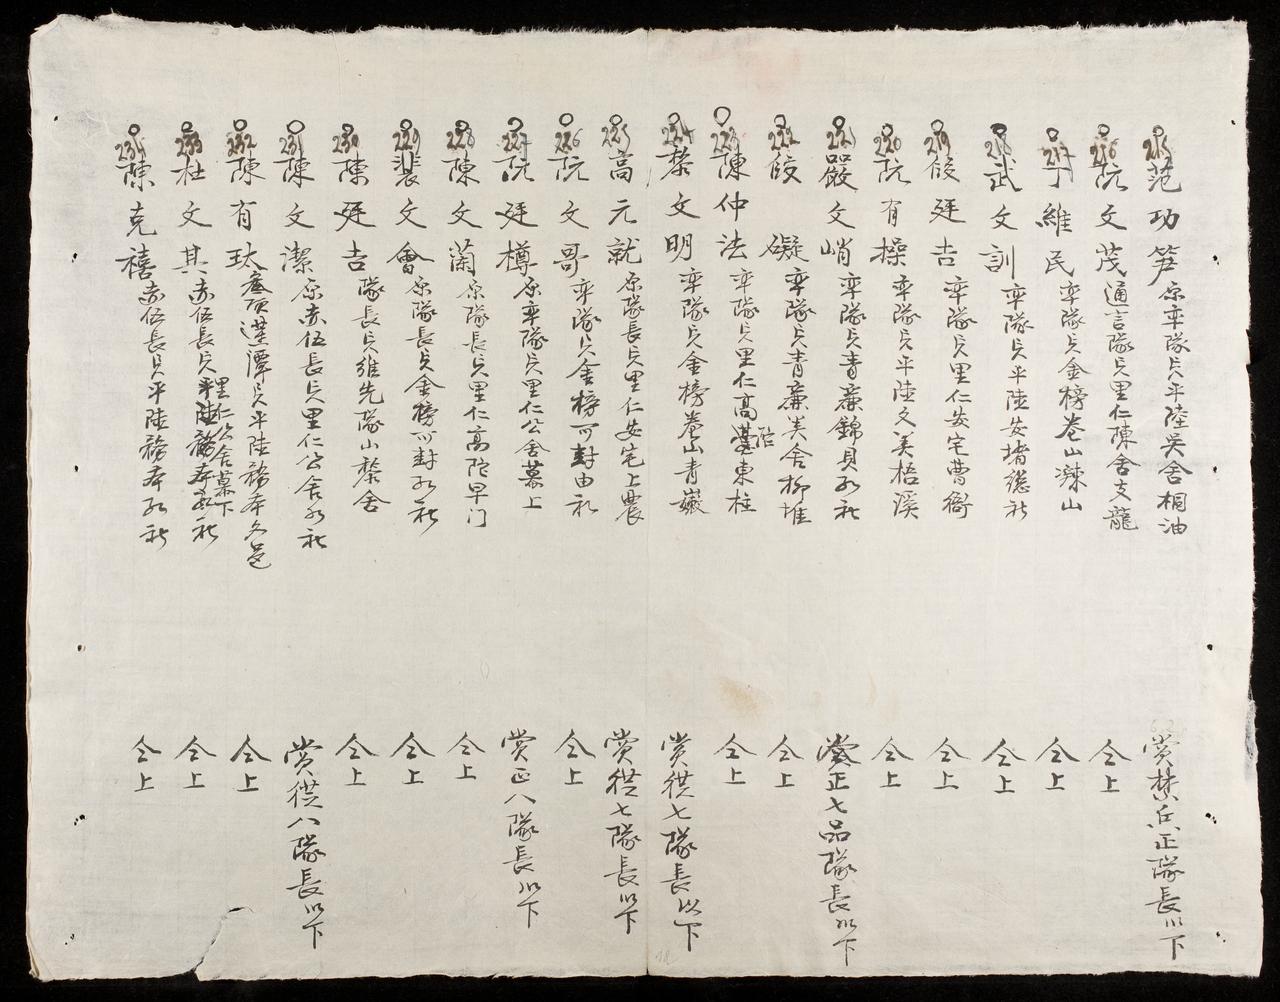 215 范功笋 原率隊兵平陸吳舍桐油 賞禁兵正隊長以下
216 阮文茂 通言隊兵里仁陳舍支龍 仝上
217 丁維民 率隊兵金榜卷山辣山 仝上
218 武文訓 率隊兵平陸安堵總社 仝上
219 段廷吉 率隊兵里仁安宅曹衙 仝上
220 阮有操 率隊兵平陸文美梧溪 仝上
221 嚴文峭 率隊兵青廉錦貝社 賞正七品隊長以下
222 段礙 率隊兵青廉美舍柳堆 仝上
223 陳仲法 率隊兵里仁高東柱 仝上
224 黎文明 率隊兵金榜卷山青巖 賞從七隊長以下
225 高元就 原隊長兵里仁安宅上農 賞從七隊長以下
226 阮文哥 率隊兵金榜可封由礼 仝上
227 阮廷樽 原率隊兵里仁公舍幕上 賞正八隊長以下
228 陳文蘭 原隊長兵里仁高陀早门 仝上
229 裴文會 原隊長兵金榜可封社 仝上
230 陳廷吉 隊長兵維先隊山黎舍 仝上
231 陳文潔 原赤伍長兵里仁公舍社 賞從八隊長以下
232 陳有玞 兵平陸務本久邑 仝上
233 杜文其 赤伍長兵里仁公舍幕下 仝上
234 陳克禧 赤伍長兵平陸務本社 仝上